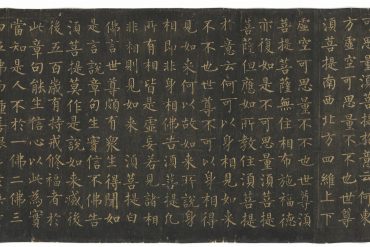 可思量須菩提於意云何東
方虛空可思量不不也世尊
須菩提南西北方四維上下
虛空可思量不不也世尊須
菩提菩薩無住相布施福德
亦復如是不可思量須菩提
菩薩但應如所教住須菩提
於意云何可以身相見如來
不不也世尊不可以身相得
見如來何以故如來所說身
相即非身相佛告須菩提凡
所有相皆是虛妄若見諸相
非相則見如來須菩提白
佛言世尊頗有衆生得聞如
是言說章句生實信不佛告
須菩提莫作是說如來滅後
後五百歲有持戒修福者於
此章句能生信心以此為實
當知是人不於一佛二佛三